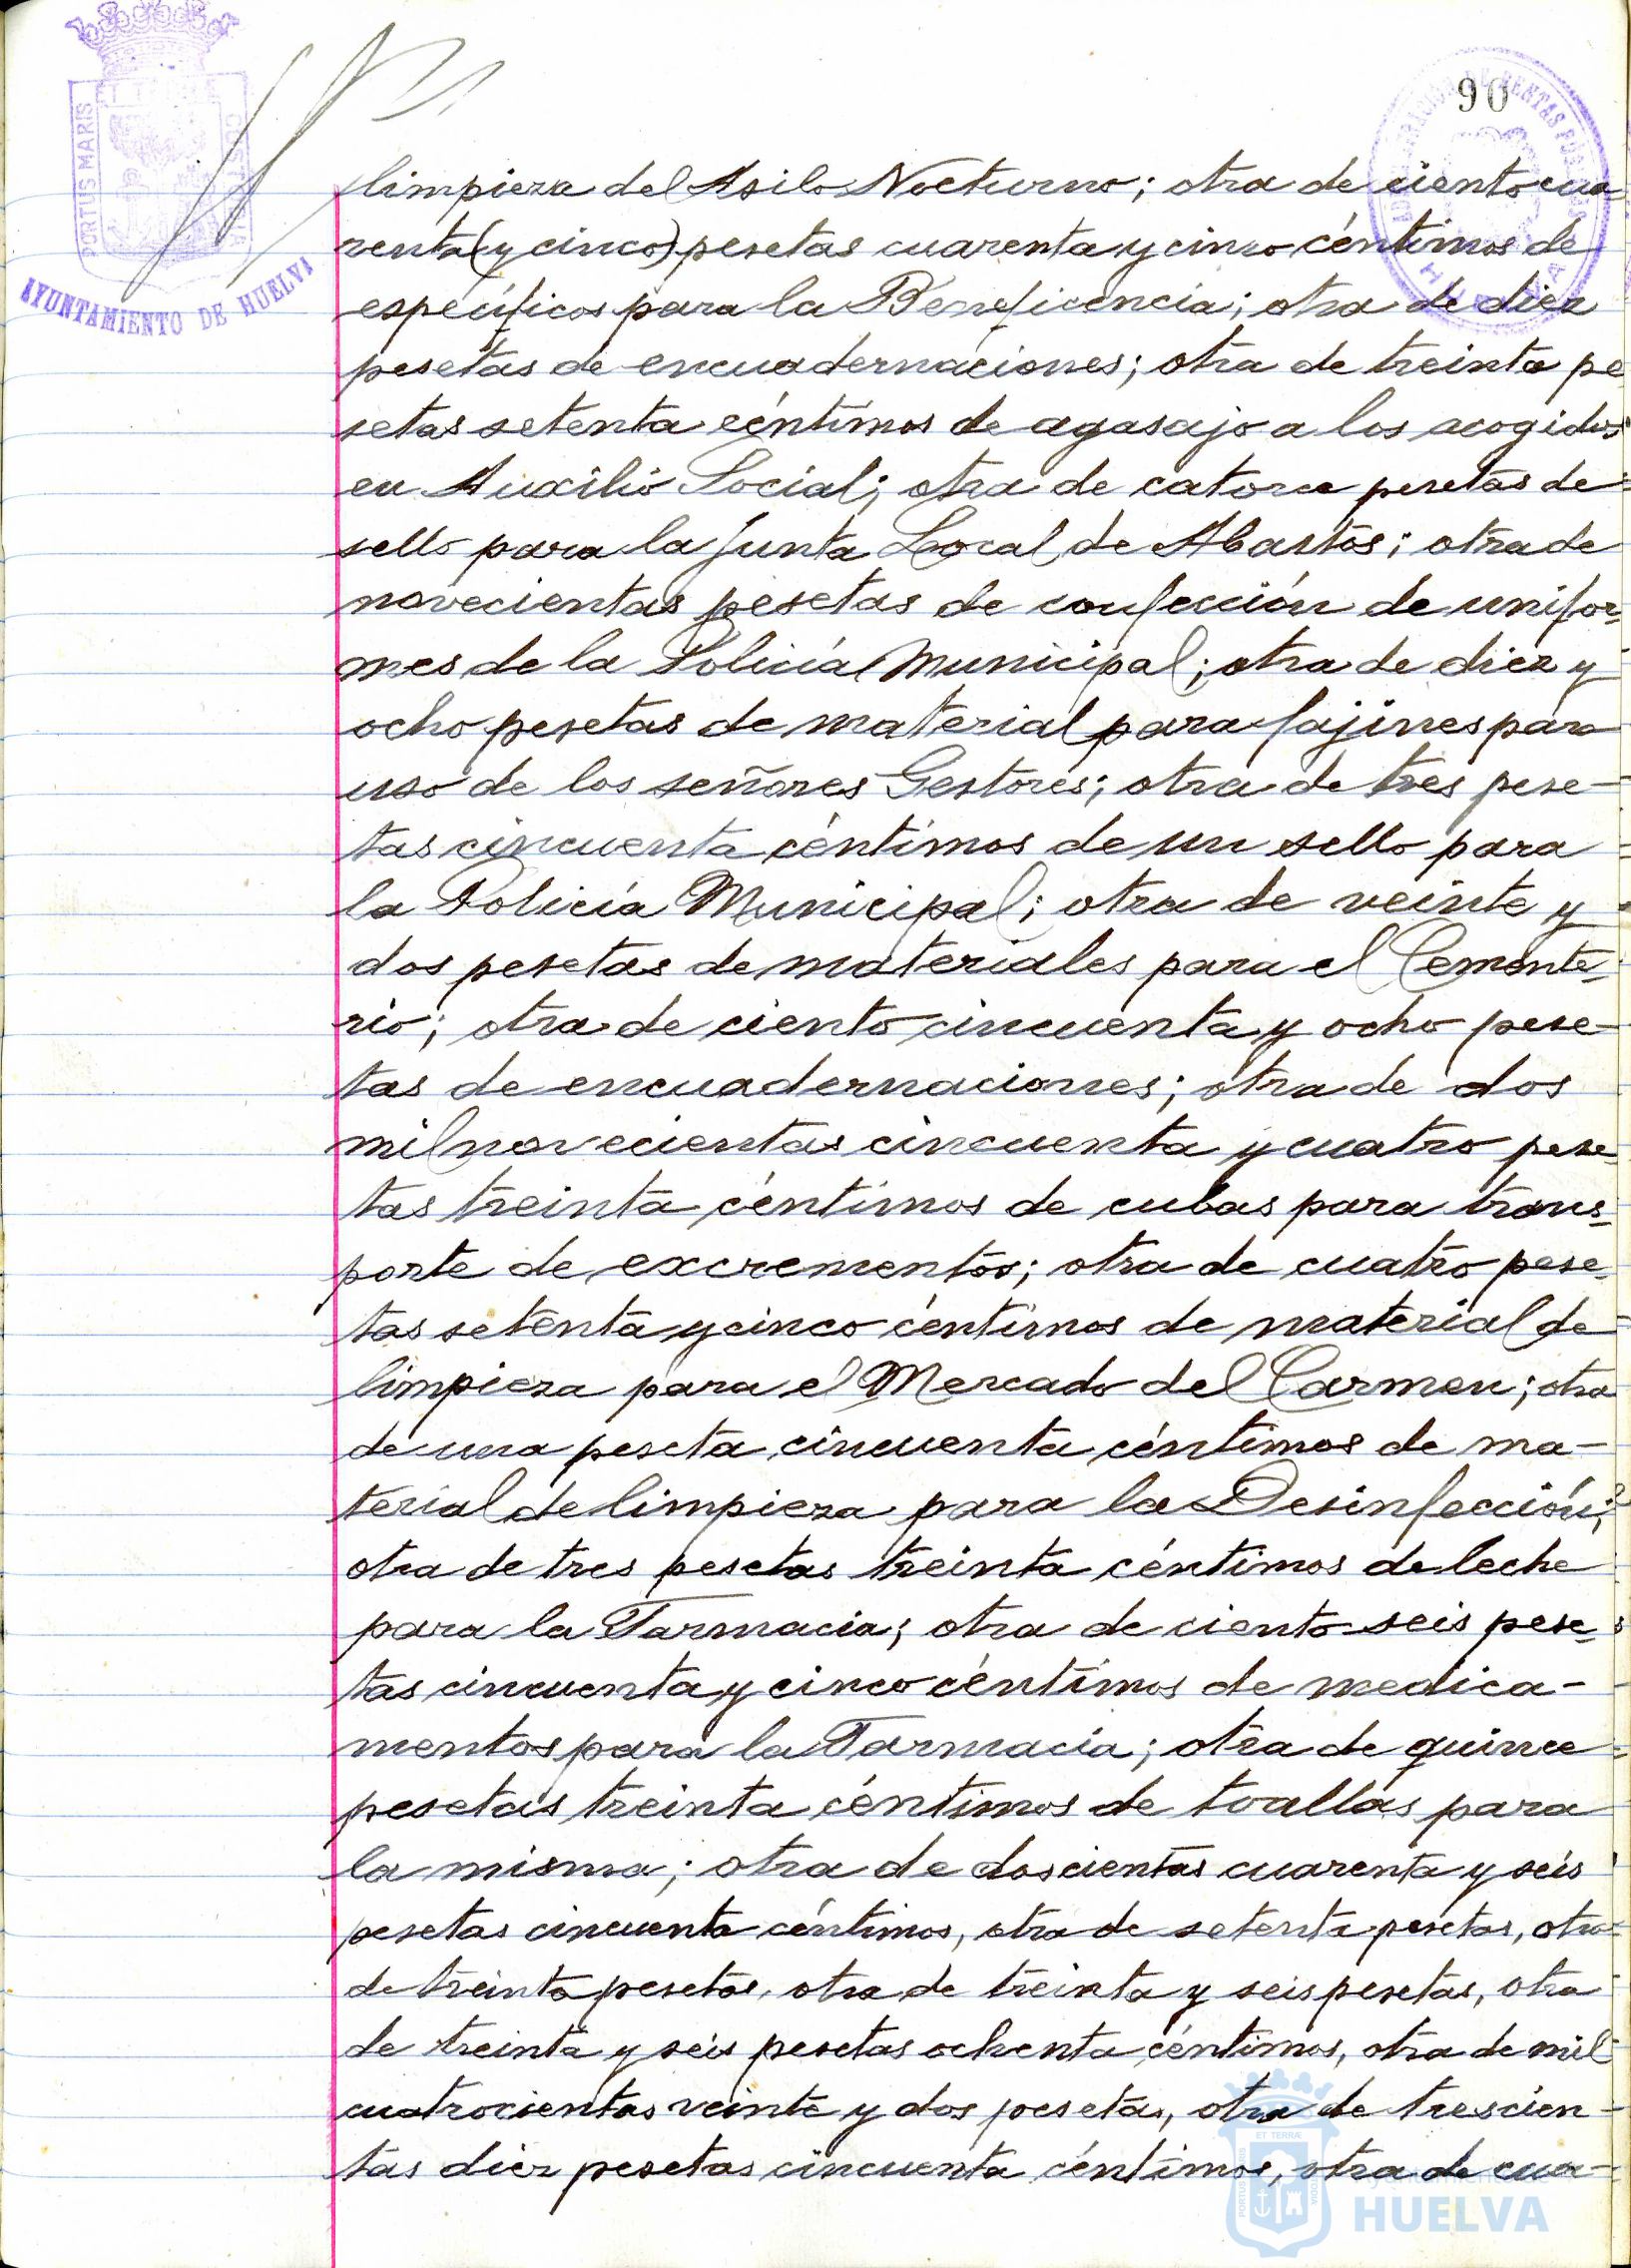 90
PORTUS MARIS
AYUNTAMIENTO DE HUELVA
limpieza del Asilo Nocturno; otra de ciento cua
renta (y cinco) pesetas cuarenta y cinco céntimos de
específicos para la Beneficencia; otra de diez
pesetas de encuadernaciones; otra de treinta pe
setas setenta céntimos de agasajo a los acogidos
en Auxilio Social; otra de catorce pesetas de
sello para la Junta Local de Abastos; otra de
novecientas pesetas de confección de unifor-
mes de la Policía Municipal; otra de diez y
ocho pesetas de material para fajines para
uso de los señores Gestores; otra de tres pese-
tas cincuenta céntimos de un sello para
la Policía Municipal; otra de veinte y
dos pesetas de materiales para el Cemente-
rio; otra de ciento cincuenta y ocho pese-
tas de encuadernaciones; otra de dos
mil novecientas cincuenta y cuatro pese-
tas treinta céntimos de cubas para trans-
porte de excrementos; otra de cuatro pese-
tas setenta y cinco céntimos de material de
limpieza para el Mercado del Carmen; otra
de una peseta cincuenta céntimos de ma-
terial de limpieza para la Desinfección;
otra de tres pesetas treinta céntimos de leche
para la Farmacia; otra de ciento seis pese-
tas cincuenta y cinco céntimos de medica-
mentos para la Farmacia; otra de quince
pesetas treinta céntimos de toallas para
la misma; otra de doscientas cuarenta y seis
pesetas cincuenta céntimos, otra de setenta pesetas, otra
de treinta pesetas, otra de treinta y seis pesetas, otra
de treinta y seis pesetas ochenta céntimos, otra de mil
cuatrocientas veinte y dos pesetas, otra de trescien-
tas diez pesetas cincuenta céntimos, otra de cua-
HUELVA